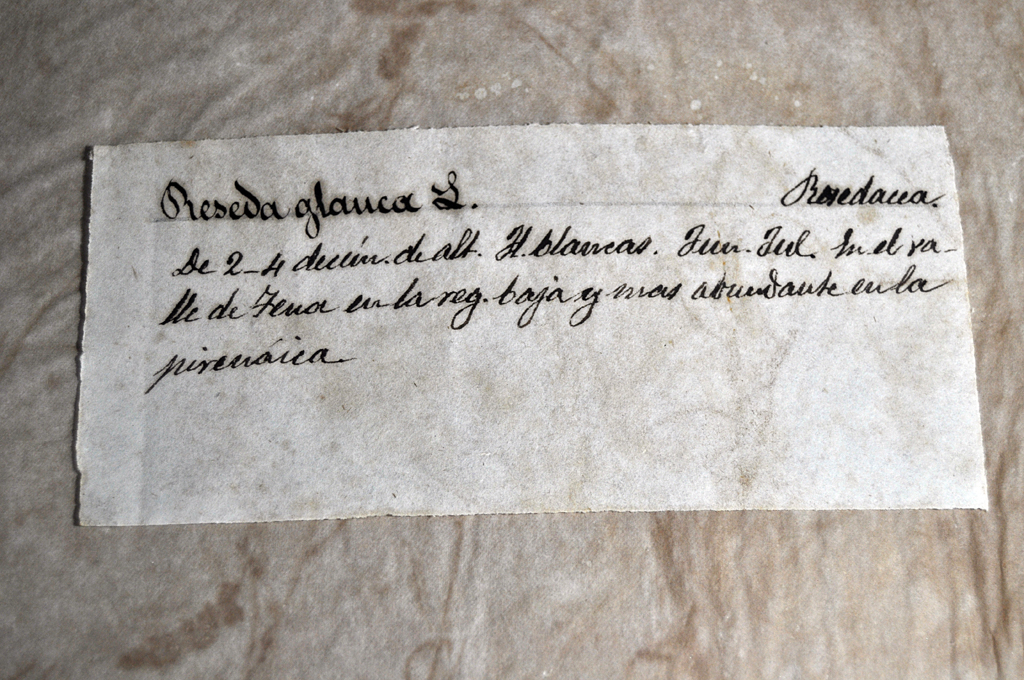 Reseda glauca L. Resedacea.
De 2-4 decím. de alt. Fl. blancas. Jun. Jul. En el va-
lle de Tena en la reg. baja y mas abundante en la
pirenáica